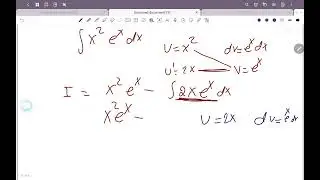 ∫x² eˣ dx
U = x²    dv = eˣ dx
U' = 2x    V = eˣ
I = x² eˣ − ∫ 2x eˣ dx
x² eˣ −    U = 2x    dv = eˣ dx